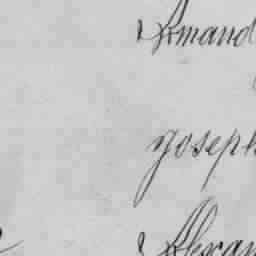 Armand
Joseph
Alexan